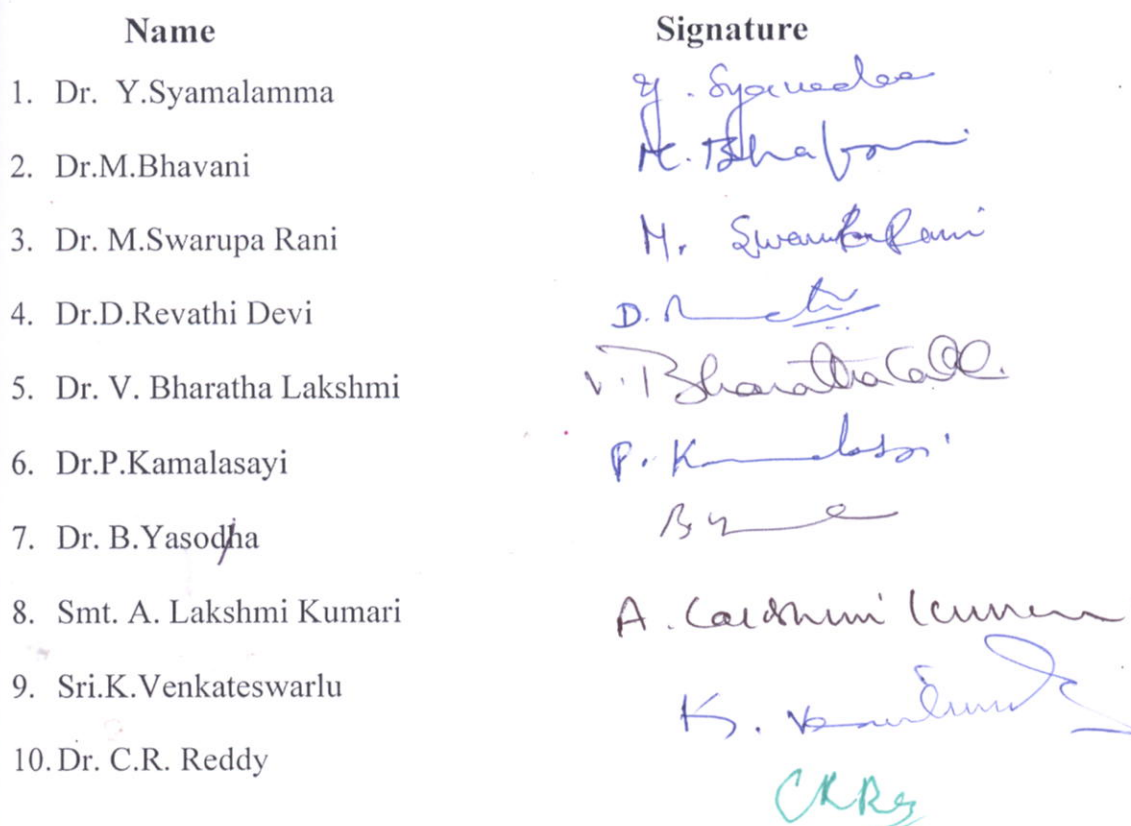 Name Signature
1. Dr. Y.Syamalamma y. Syamala
2. Dr.M.Bhavani M. Bhavani
3. Dr. M.Swarupa Rani M. Swarupa Rani
4. Dr.D.Revathi Devi D.
5. Dr. V. Bharatha Lakshmi V. Bharatha
6. Dr.P.Kamalasayi P.
7. Dr. B.Yasodha
8. Smt. A. Lakshmi Kumari A. Lakshmi Kumari
9. Sri.K.Venkateswarlu K.
10. Dr. C.R. Reddy